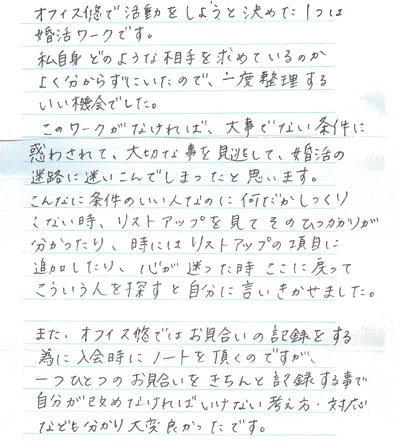 オフィス悠で活動をしようと決めた1つは
婚活ワークです。
私自身どのような相手を求めているのか
よく分からずにいたので、一度整理する
いい機会でした。
このワークがなければ、大事でない条件に
惑わされて、大切な事を見逃して、婚活の
迷路に迷いこんでしまったと思います。
こんなに条件のいい人なのに何だかしっくり
こない時、リストアップを見てそのひっかかりが
分かったり、時にはリストアップの項目に
追加したり、心が迷った時ここに戻って
こういう人を探すと自分に言いきかせました。
また、オフィス悠ではお見合いの記録をする
為に入会時にノートを頂くのですが、
一つひとつのお見合いをきちんと記録する事で
自分が改めなければいけない考え方・対応
なども分かり大変良かったです。